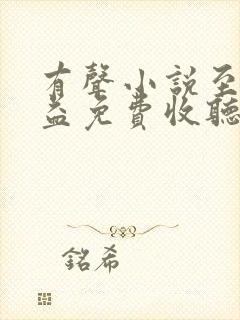 有聲小說至
益免費收聽
銘希